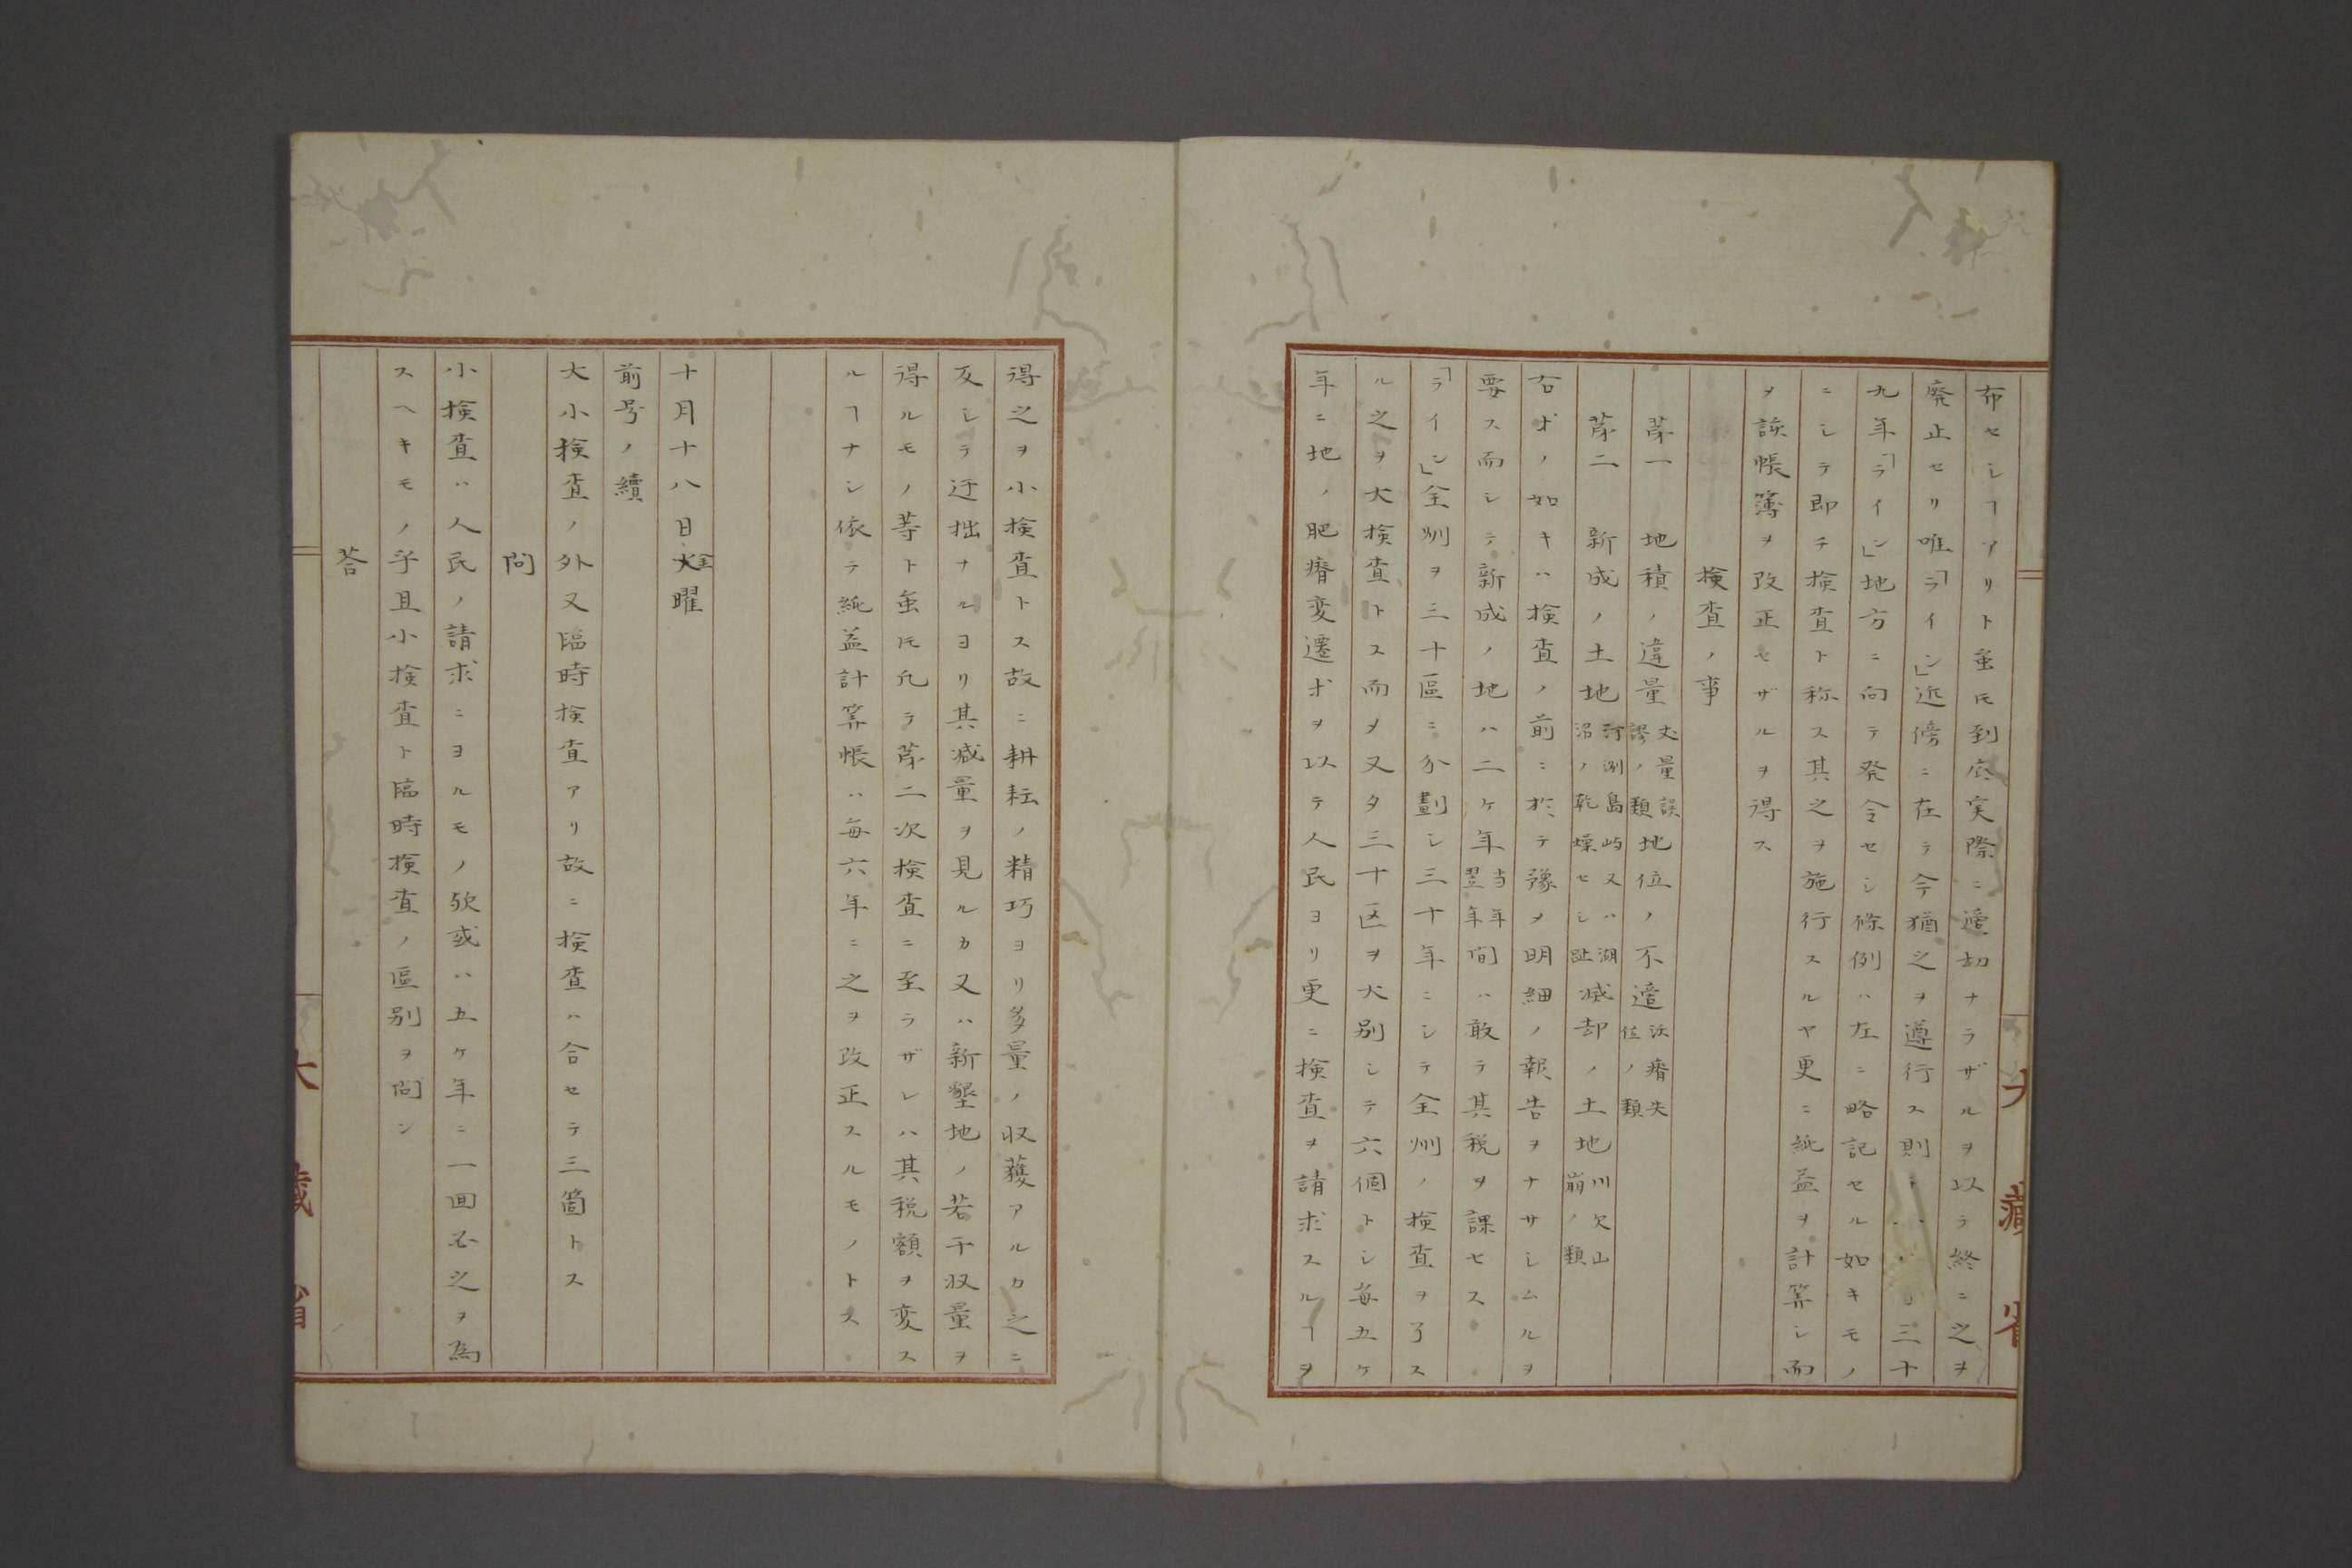 布セシヿアリト虽𪜈到底実際ニ適切ナラザルヲ以テ終ニ之ヲ
廃止セリ唯「ライン」近傍ニ在テ今猶之ヲ遵行ス則 三十
九年「ライン」地方ニ向テ発令セシ條例ハ左ニ略記セル如キモノ
ニシテ即チ検査ト称ス其之ヲ施行スルヤ更ニ純益ヲ計筭シ而
ヲ該帳簿ヲ改正セザルヲ得ス
検査ノ事
苐一 地積ノ違量丈量誤謬ノ類地位ノ不適沃瘠失位ノ類
苐二 新成ノ土地河洲島屿又ハ湖沼ノ乾燥セシ趾滅却ノ土地川欠山崩ノ類
右才ノ如キハ検査ノ前ニ於テ豫メ明細ノ報告ヲナサシムルヲ
要ス而シテ新成ノ地ハ二ケ年当年翌年間ハ敢テ其税ヲ課セス
「ライン」全州ヲ三十區ニ分劃シ三十年ニシテ全州ノ検査ヲ了ス
ル之ヲ大検査トス而ヲ又タ三十区ヲ大別シテ六個トシ毎五ケ
年ニ地ノ肥瘠変遷才ヲ以テ人民ヨリ更ニ検査ヲ請求スルヿヲ
大藏省
得之ヲ小検査トス故ニ耕耘ノ精巧ヨリ多量ノ収獲アルカ之ニ
反シテ迂拙ナルヨリ其減量ヲ見ルカ又ハ新墾地ノ若干収量ヲ
得ルモノ等ト虽𪜈凢テ苐二次検査ニ至ラザレハ其税額ヲ変ス
ルヿナシ依テ純益計筭帳ハ毎六年ニ之ヲ改正スルモノトス
十月十八日金曜
前号ノ續
大小検査ノ外又臨時検査アリ故ニ検査ハ合セテ三箇トス
問
小検査ハ人民ノ請求ニヨルモノ欤或ハ五ケ年ニ一回必之ヲ為
スヘキモノ乎且小検査ト臨時検査ノ區別ヲ问ン
荅
大藏省